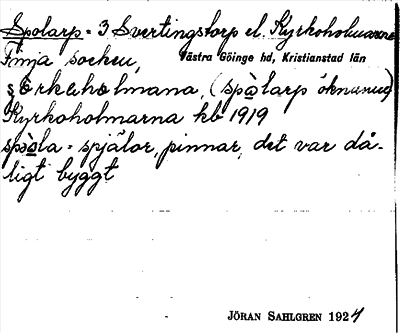 Spolarp = 3 Svertingstorp el. Kyrkoholmarna
Finja socken, Västra Göinge hd, Kristianstad län
(spòlarp öknamn)
Kyrkoholmarna kb 1919
spòla = spjälor, pinnar, det var då-
ligt byggt
JÖRAN SAHLGREN 1924